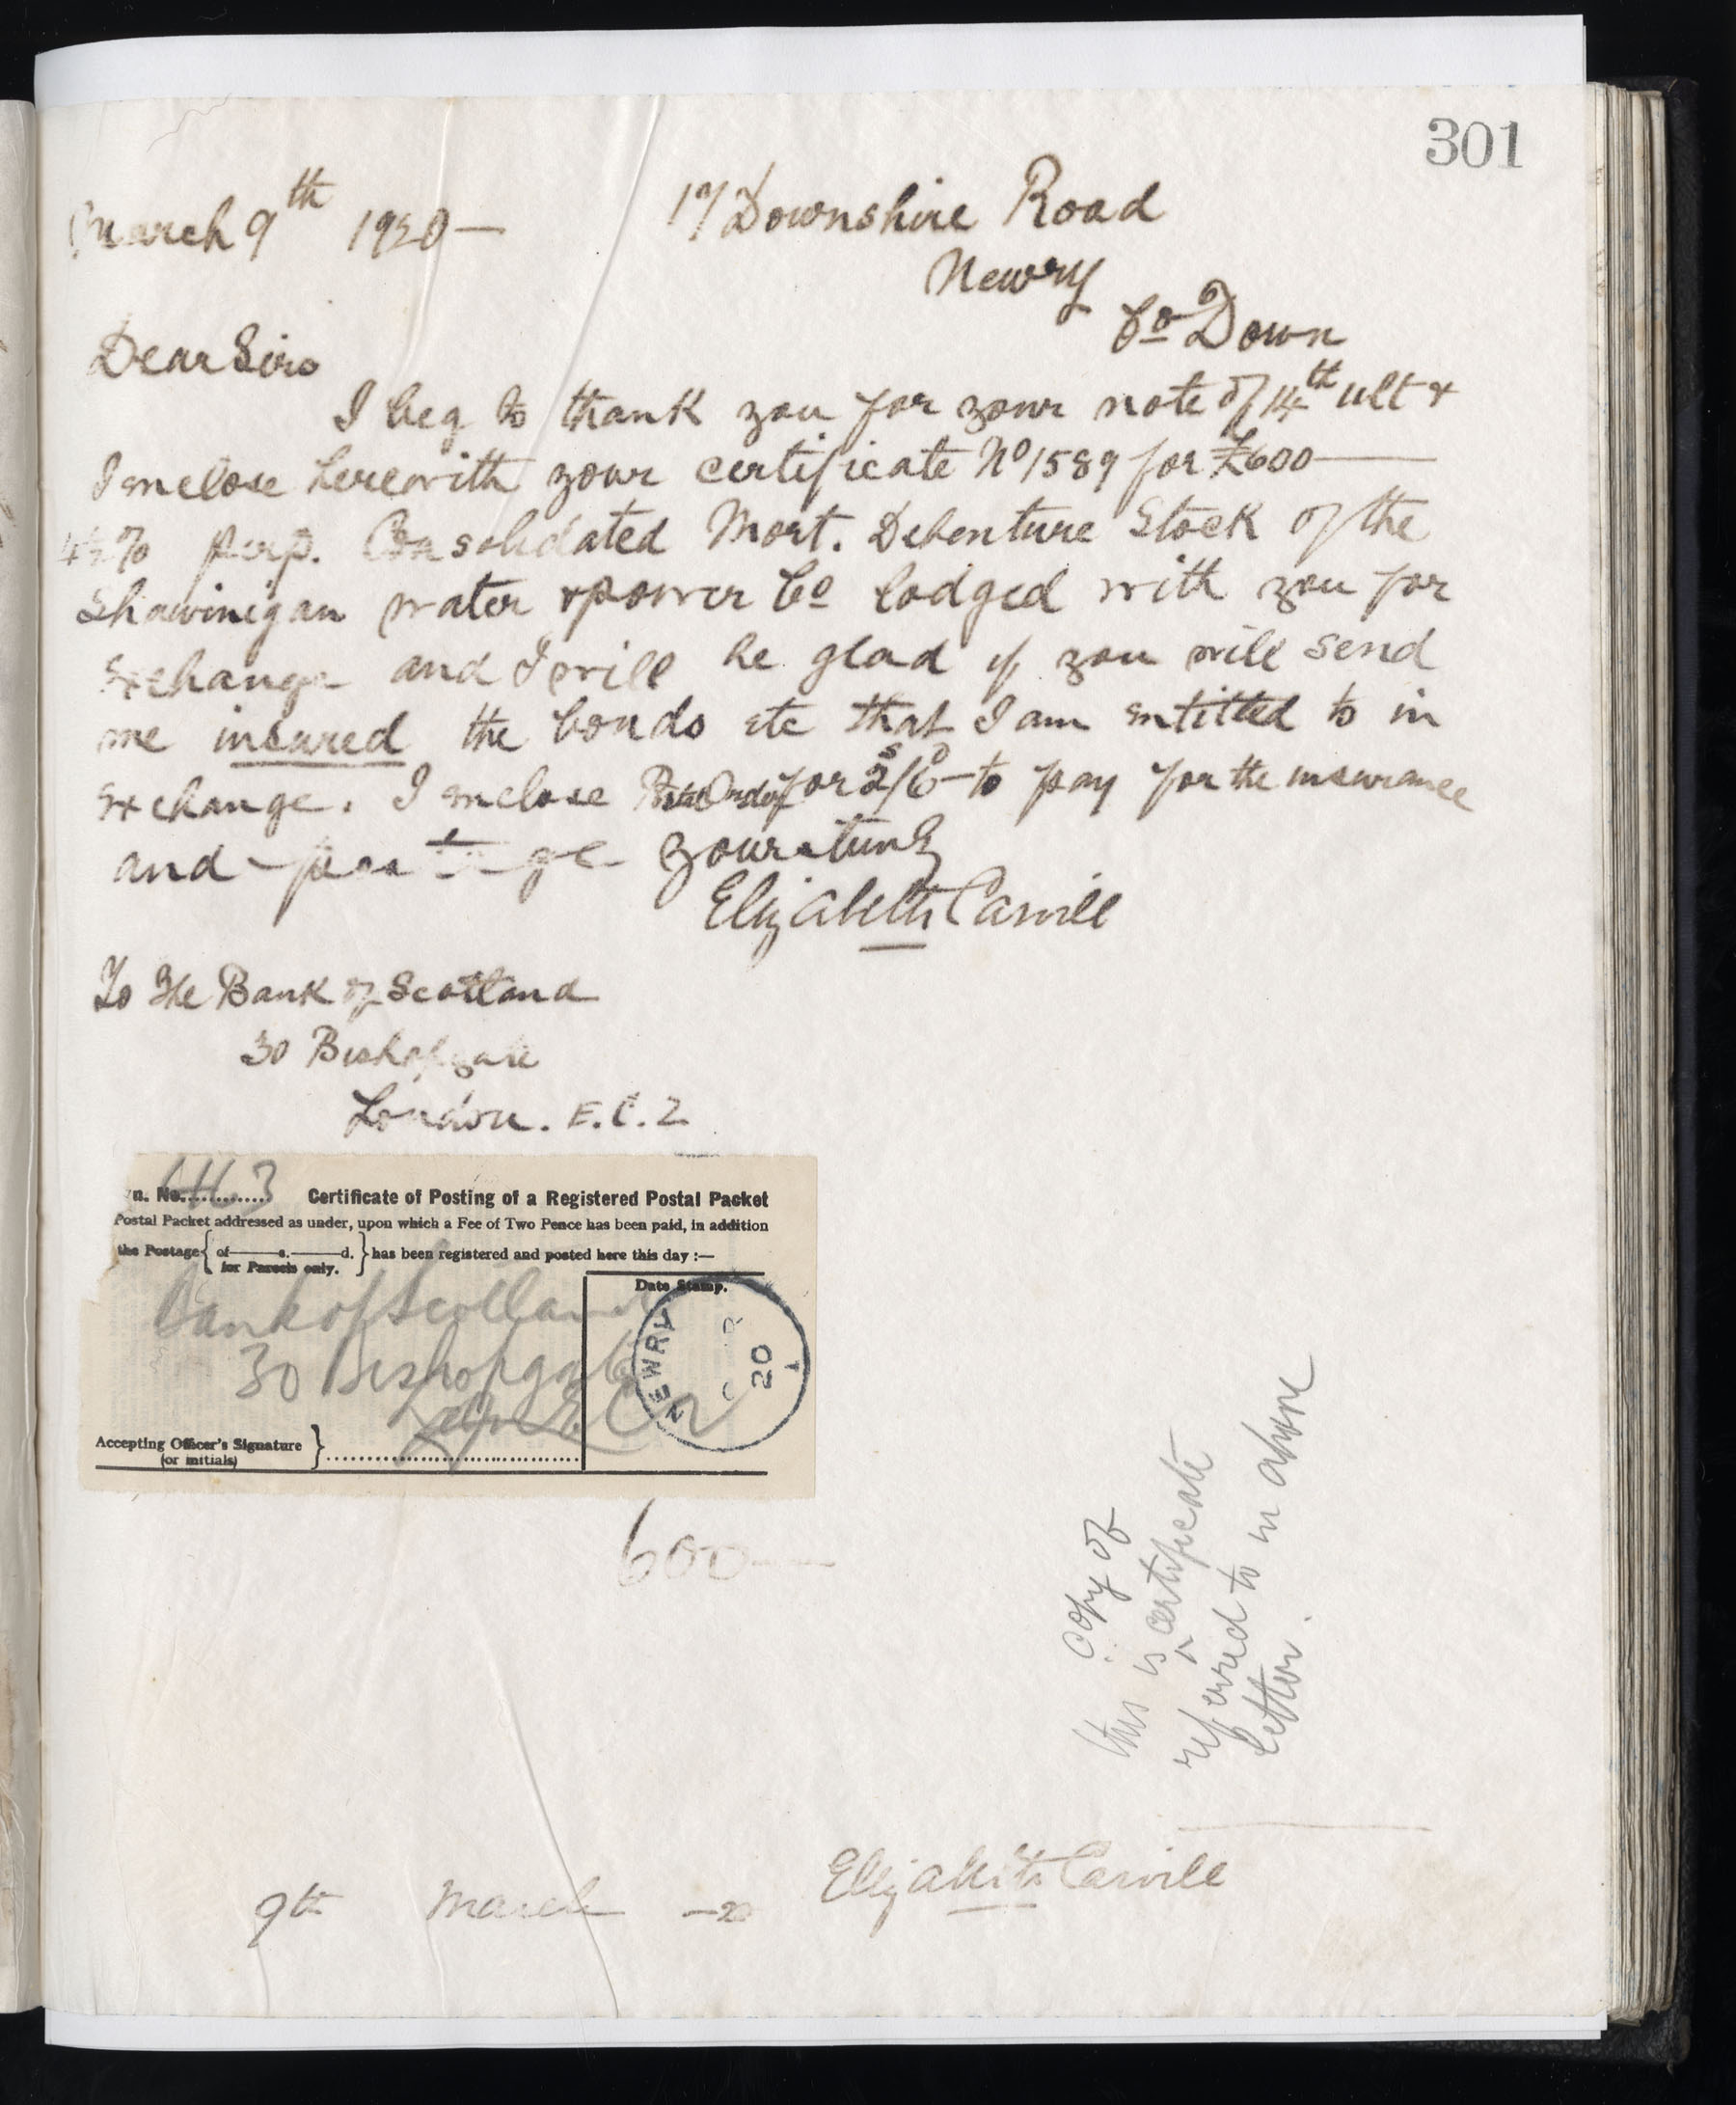 301
March 9th 1920— 17 Downshire Road
Newry
Co Down
Dear Sirs
I beg to thank you for your note of 14th ult &
I enclose herewith your certificate No 1589 for £600—
4½% perp. Consolidated Mort. Debenture Stock of the
Shawinigan water & power Co lodged with you for
exchange and I will be glad if you will send
me insured the bonds etc that I am entitled to in
exchange. I enclose Postal Order for 2s/6D— to pay for the insurance
and postage yours truly
Elizabeth Carvill
To The Bank of Scotland
30 Bishopsgate
London. E.C.2
n. No. 3 Certificate of Posting of a Registered Postal Packet
Postal Packet addressed as under, upon which a Fee of Two Pence has been paid, in addition
the Postage { of — s. — d. for Parcels only. } has been registered and posted here this day :—
Date Stamp.
Bank of Scotland
30 Bishopgate
EC2
NEWRY
20
1
Accepting Officer's Signature
(or initials)
600—
copy of
this is ^ certificate
referred to in above
letter.
9th March —20 Elizabeth Carvill